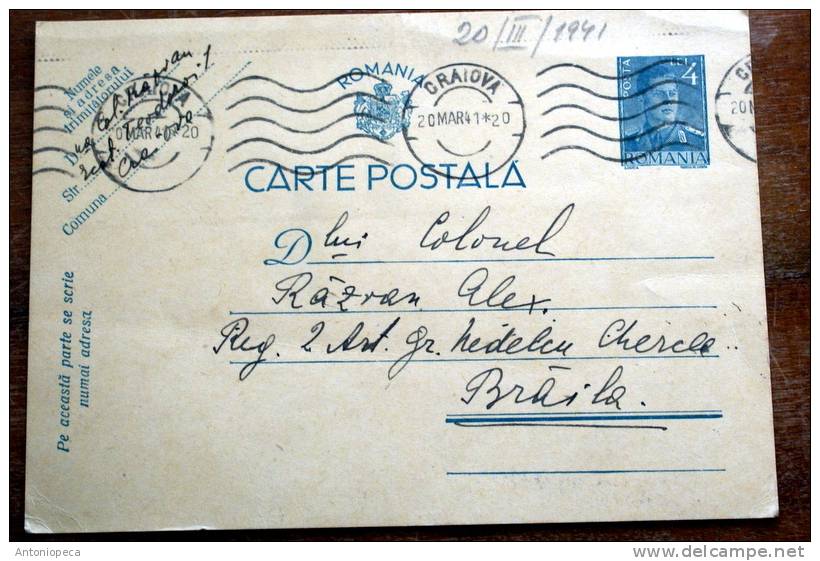 20/III/1941
Numele
și adresa
trimițătorului
D na Col. Răzvan
Str. Teodoru 1
Comuna
CRAIOVA
20 MAR 41 * 20
ROMANIA
CRAIOVA
20 MAR 41 * 20
POSTA
LEI 4
ROMANIA
CARTE POSTALĂ
D lui Colonel
Răzvan Alex.
Reg. 2 Art. Gr. Nedelcu Chercea
Brăila.
Pe această parte se scrie
numai adresa
Antoniopeca
delcampe.net